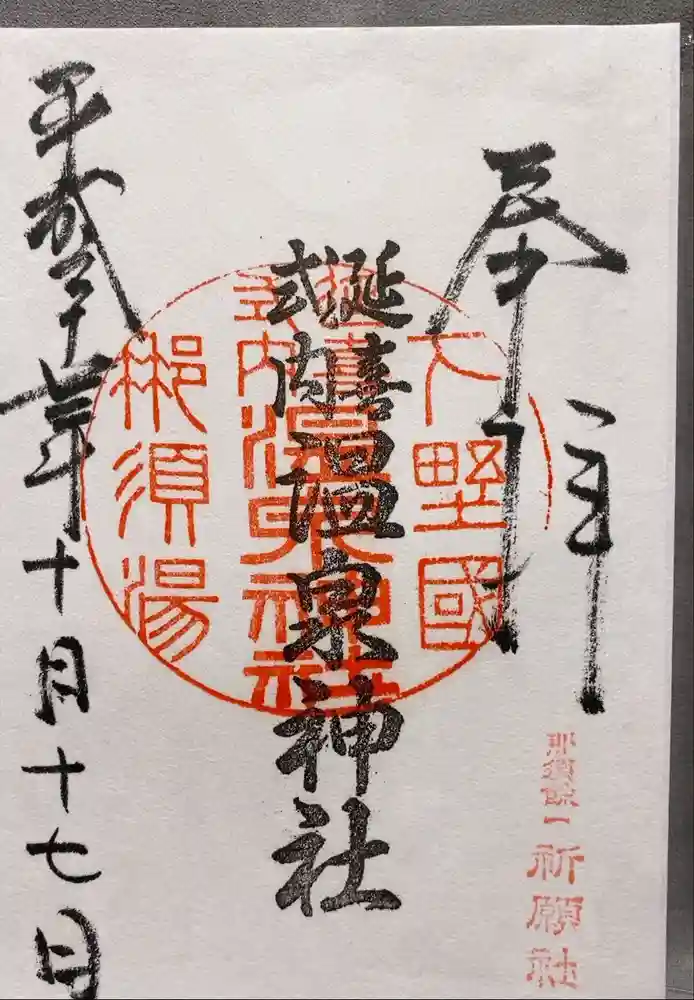 奉拝
那須餘一
祈願社
下野國
延喜
式内
温泉神社
延喜
式内
温泉神社
那須湯
平成三十年十月十七日